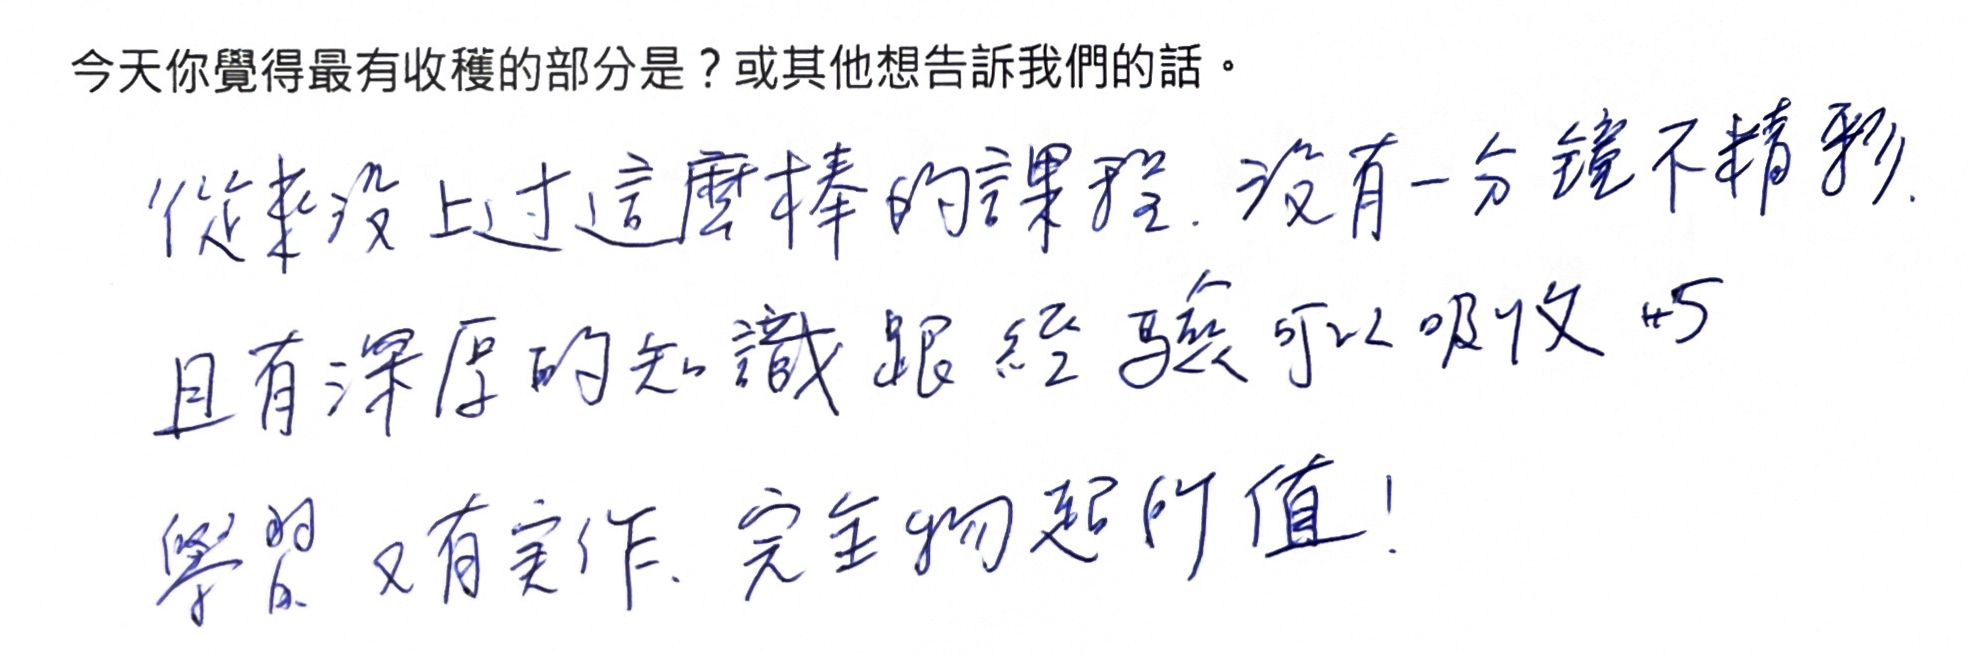 今天你覺得最有收穫的部分是？或其他想告訴我們的話。
從來沒上过這麼棒的課程. 沒有一分鐘不精彩.
且有深厚的知識跟經驗可以吸收
學習 又有实作. 完全物超所值!